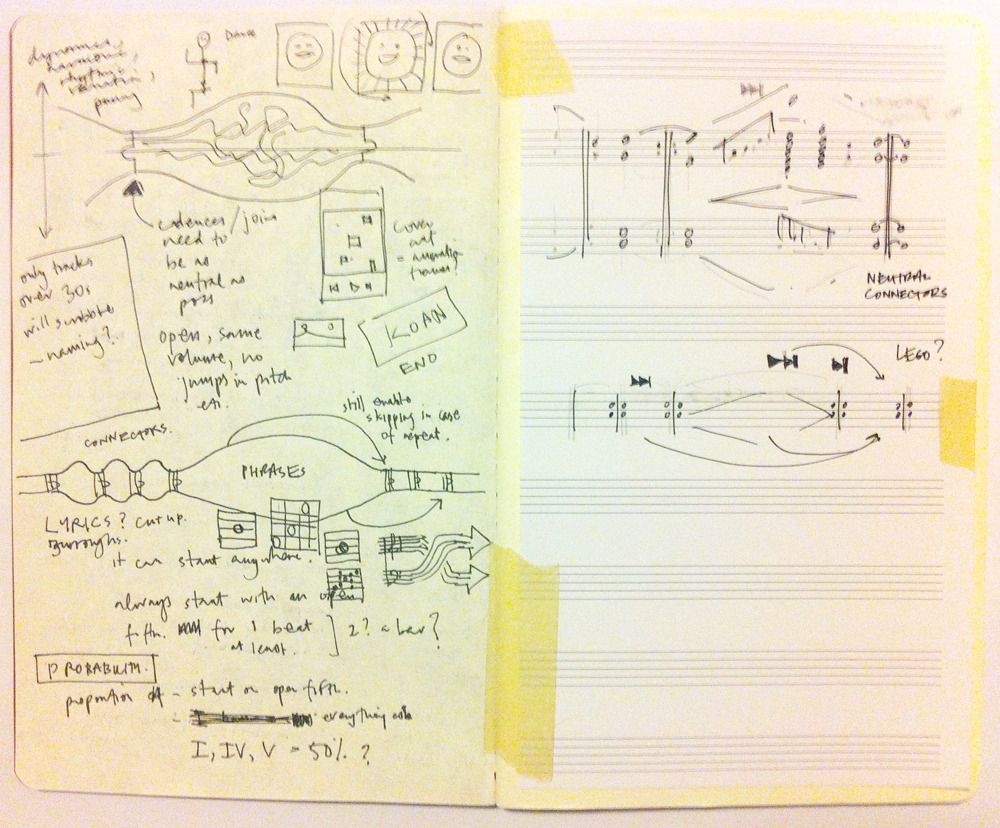 dynamics,
harmonic,
rhythmic
variation,
Dance
cadences/join
need to
be as
neutral as
poss
open, same
volume, no
jumps in pitch
etc.
only tracks
over 30s
will scrobble
– naming?
cover
art
= animation
frames?
KOAN
END
still enable
skipping in case
of repeat.
CONNECTORS.
PHRASES
LYRICS? cut up.
Burroughs.
it can start anywhere.
always start with an open
fifth. for 1 beat
at least.
2? a bar?
PROBABILITY.
proportion of – start on open fifth.
– everything else
I, IV, V = 50% ?
NEUTRAL
CONNECTORS
LEGO?